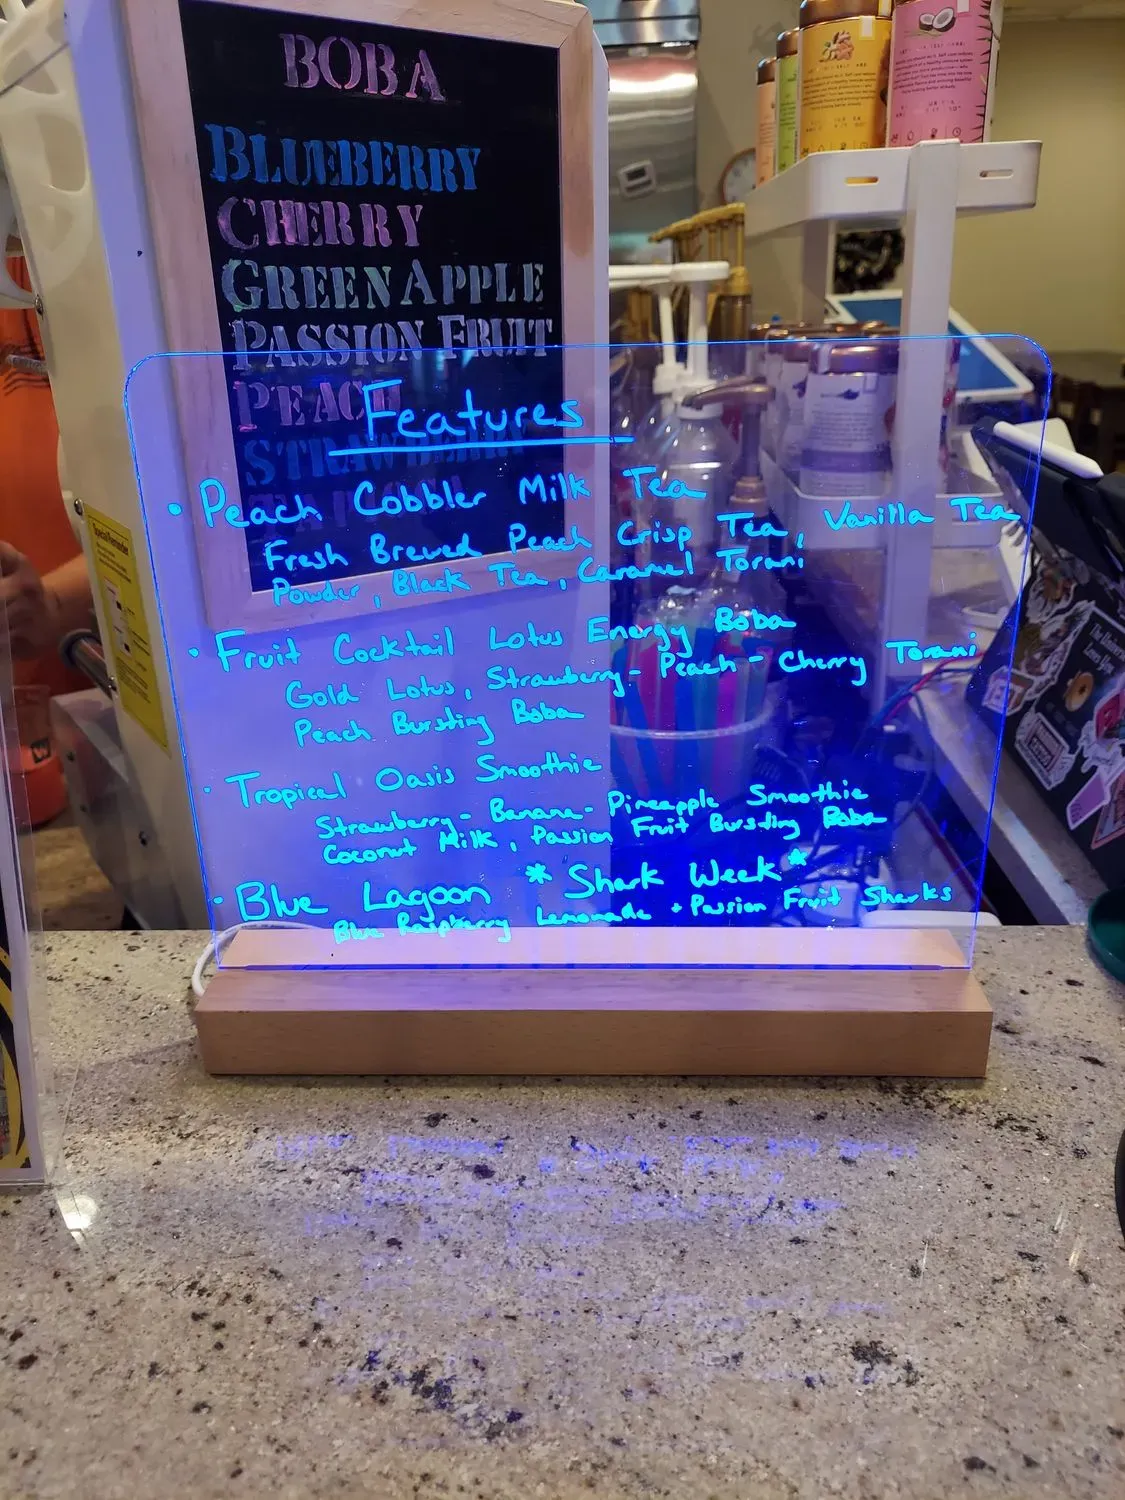 BOBA
BLUEBERRY
CHERRY
GREEN APPLE
PASSION FRUIT
PEACH
STRAWBERRY
Features
• Peach Cobbler Milk Tea
Fresh Brewed Peach Crisp Tea, Vanilla Tea
Powder, Black Tea, Caramel Torani
• Fruit Cocktail Lotus Energy Boba
Gold Lotus, Strawberry - Peach - Cherry Torani
Peach Bursting Boba
• Tropical Oasis Smoothie
Strawberry - Banana - Pineapple Smoothie
Coconut Milk, Passion Fruit Bursting Boba
• Blue Lagoon *Shark Week*
Blue Raspberry Lemonade + Passion Fruit Sharks